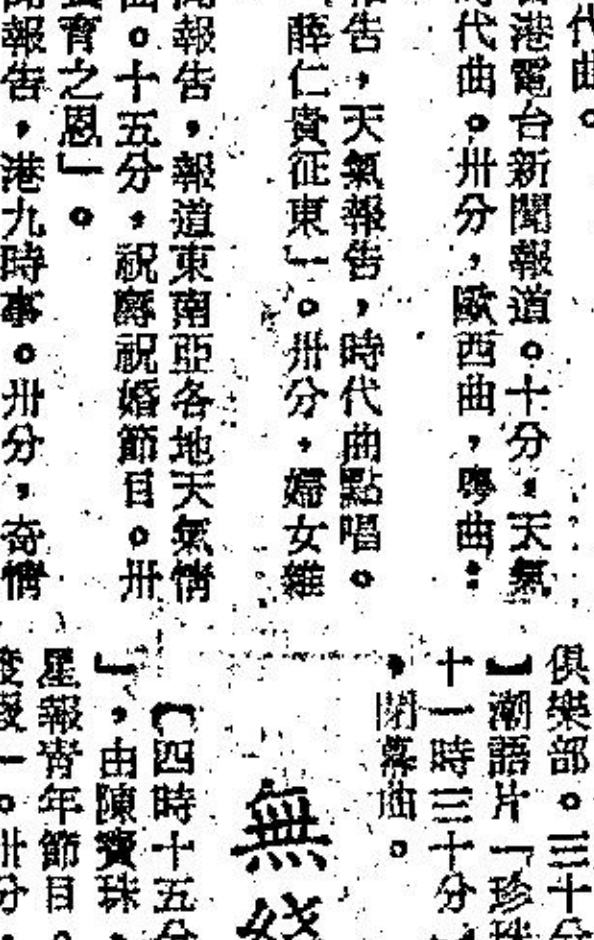 代曲。
香港電台新聞報道。十分，天氣
時代曲。卅分，歐西曲，粵曲：
報告，天氣報告，時代曲點唱。
薛仁貴征東」。卅分，婦女雜
聞報告，報道東南亞各地天氣情
曲。十五分，祝壽祝婚節目。卅
養育之恩」。
聞報告，港九時事。卅分，奇情
俱樂部。三十分
】潮語片「珍珠
十一時三十分
，閉幕曲。
無綫
【四時十五分
】，由陳寶珠，
星報青年節目。
。卅分，